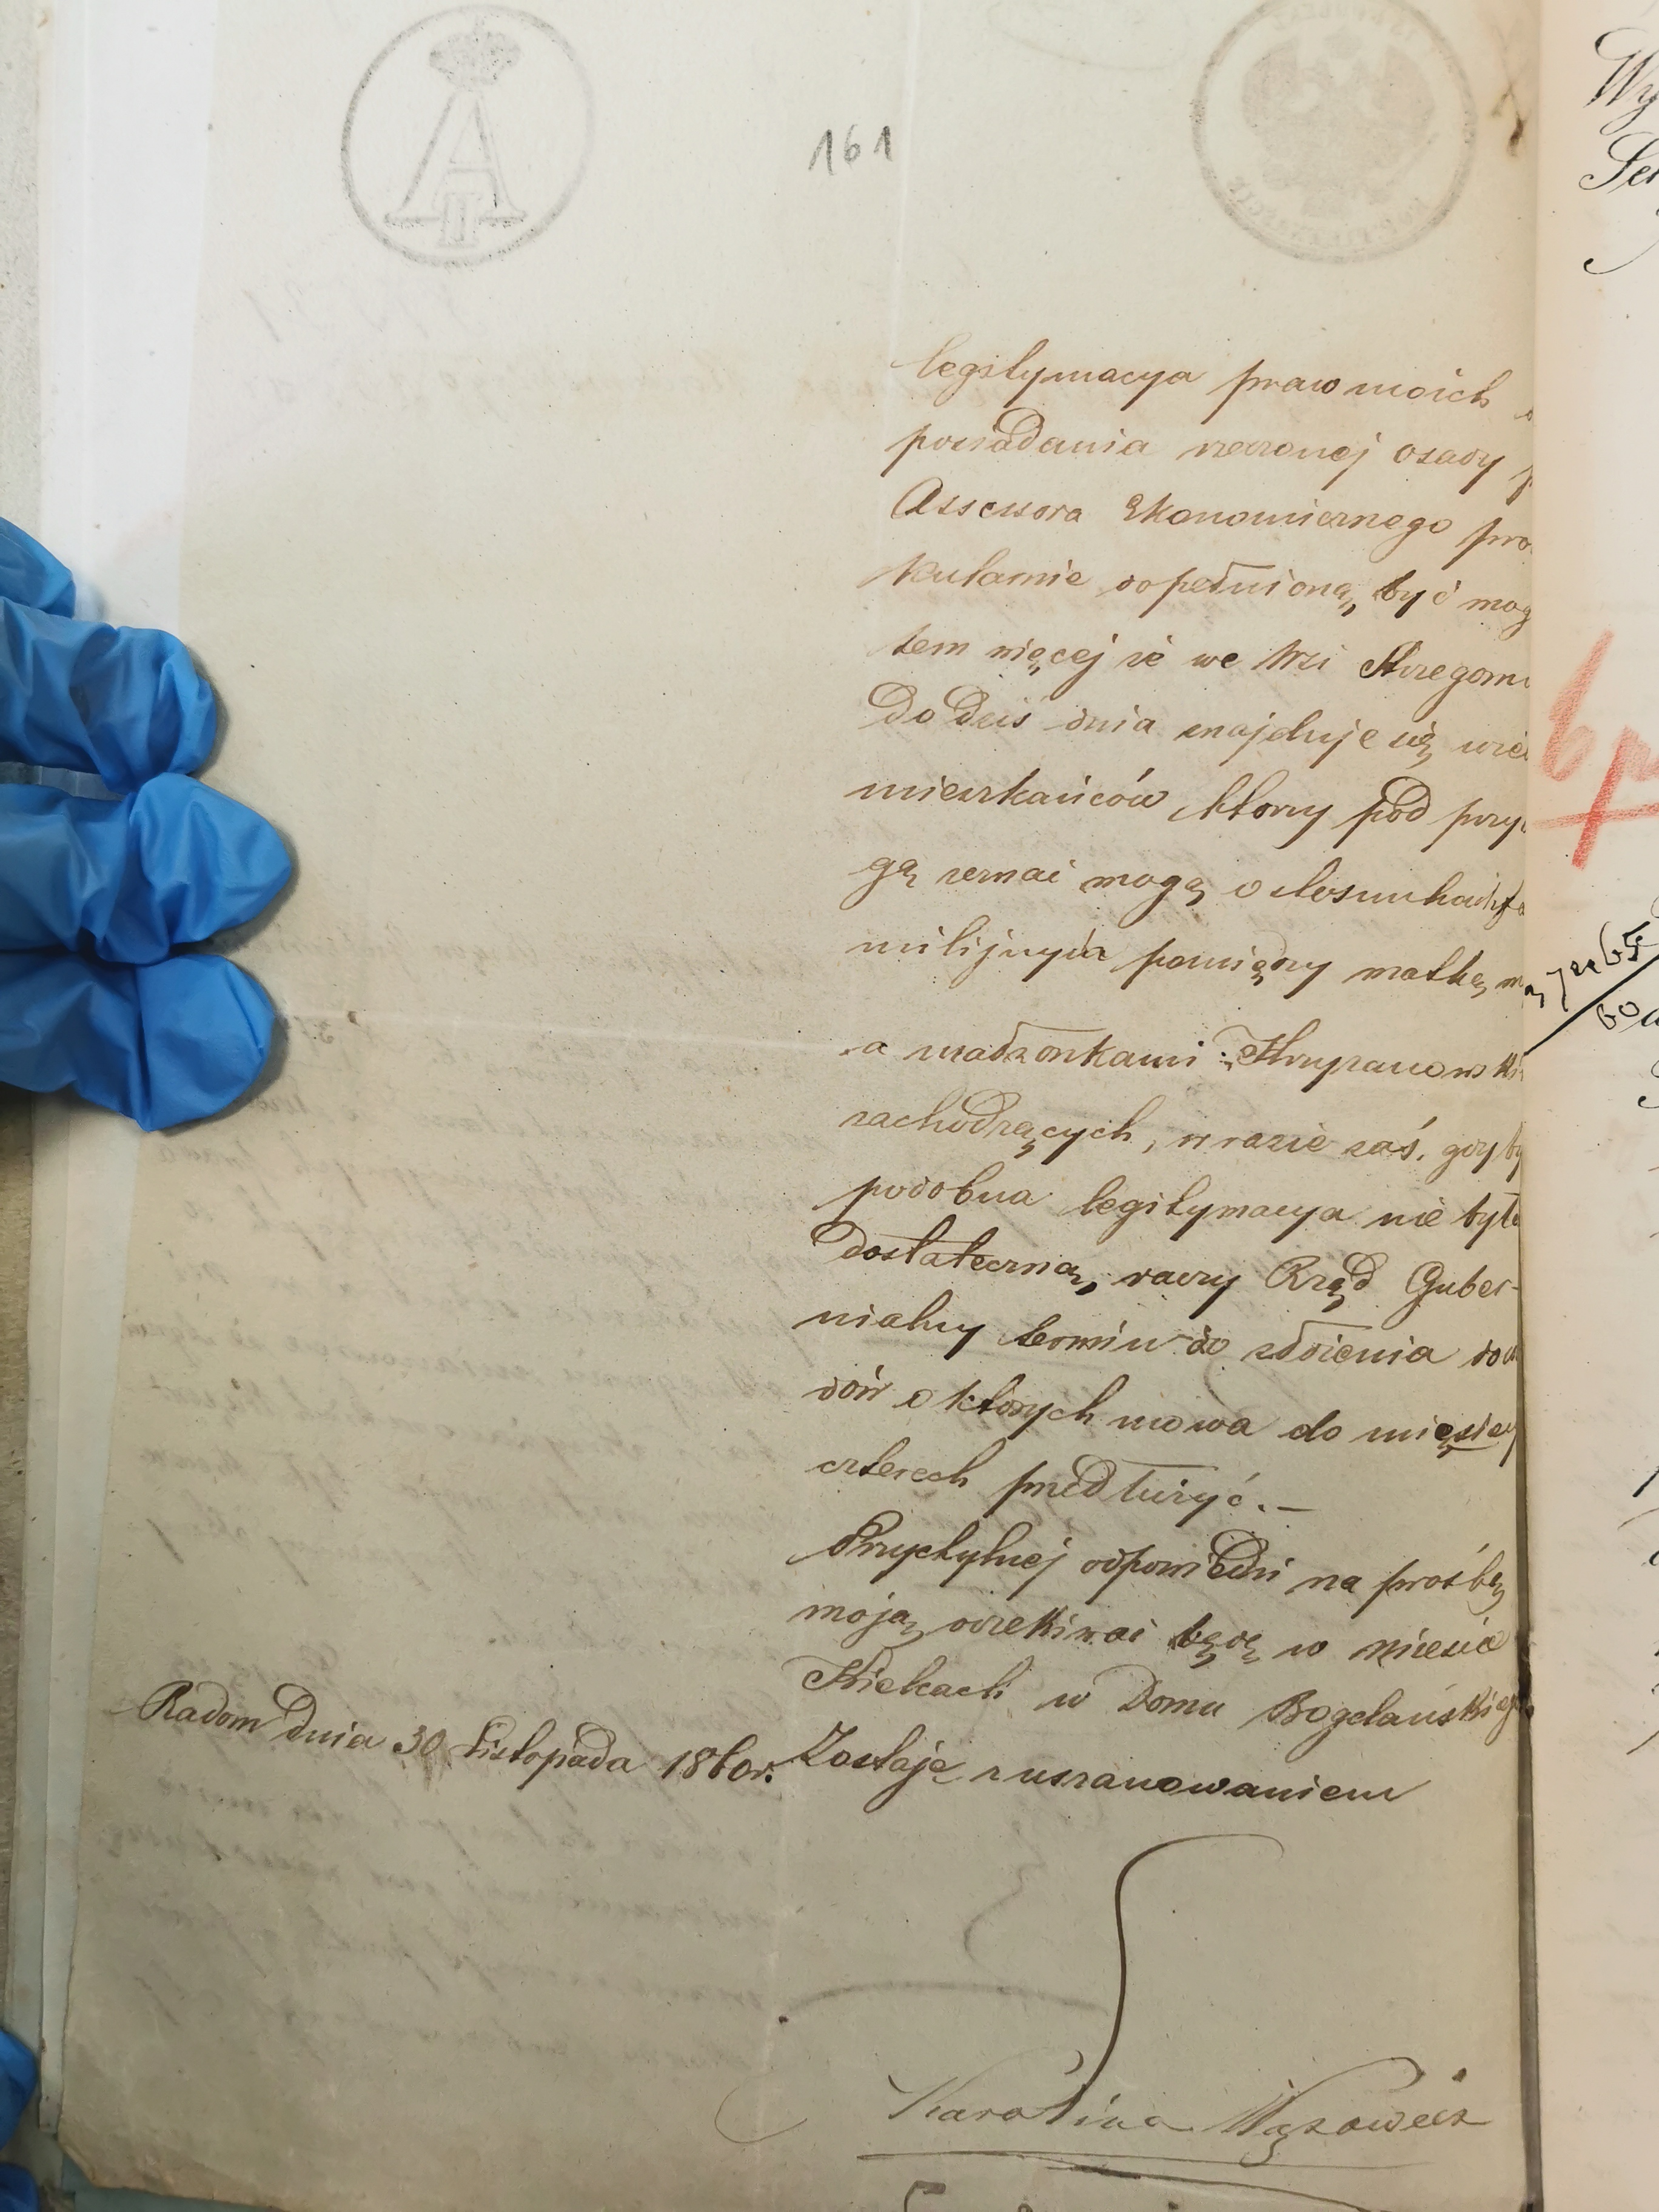 161
legitymacya praw moich
posiadania rzeczonej osady
Assessora Ekonomicznego pro
kularnie dopełnioną być mog
tem więcej że we Wsi Strzegom
do dziś dnia znajduje się wie
mieszkańców którzy pod przy
gą zeznać mogą o stosunkach fa
milijnych pomiędzy matką m
a małżonkami Chrzanowski
zachodzących, w razie zaś, gdyby
podobna legitymacya nie była
dostateczną, raczy Rząd Guber-
nialny termin do złożenia dow
dów o których mowa do miesięcy
czterech przedłużyć. —
Przychylnej odpowiedzi na prośbę
moją oczekiwać będę w mieście
Kielcach w Domu Bogdańskiego
Radom dnia 30 Listopada 1860 r. Zostaję z uszanowaniem
Karolina Wąsowicz